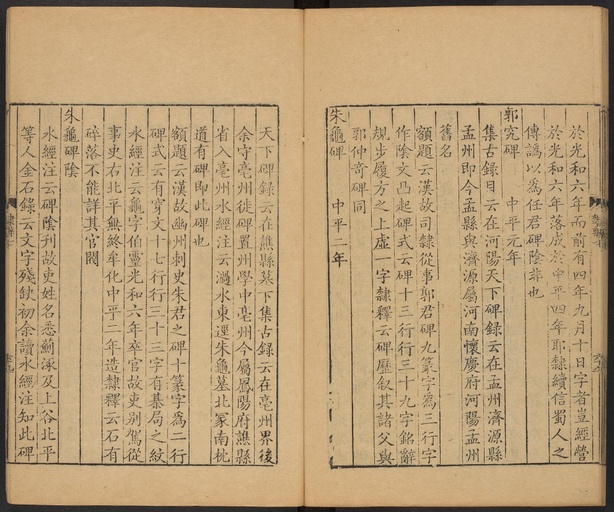 於光和六年而前有四年九月十日字者豈經營
於光和六年落成於中平四年耶隸續信蜀人之
傳譌以為任君碑陰非也
郭究碑　中平元年
集古錄目云在河陽天下碑錄云在孟州濟源縣
孟州即今孟縣與濟源屬河南懷慶府河陽孟州
舊名
額題云漢故司隸從事郭君碑九篆字為三行字
作陰文凸起碑式云碑十三行行三十九字銘辭
規步履方之上虛一字隸釋云碑歷叙其諸父與
郭仲奇碑同
朱龜碑　中平二年
天下碑錄云在譙縣墓下集古錄云在亳州界後
余守亳州徙碑置州學中亳州今屬鳳陽府譙縣
省入亳州水經注云濄水東逕朱龜墓北冢南枕
道有碑即此碑也
額題云漢故幽州刺史朱君之碑十篆字為二行
碑式云有穿文十七行行三十三字有棊局之紋
水經注云龜字伯靈光和六年卒官故吏別駕從
事史右北平無終牟化中平二年造隸釋云石有
碎落不能詳其官閥
朱龜碑陰
水經注云碑陰刋故吏姓名悉薊涿及上谷北平
等人金石錄云文字殘缺初余讀水經注知此碑